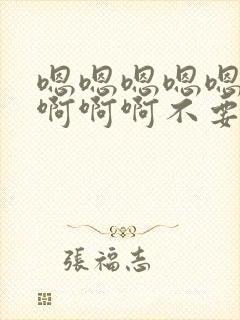 嗯嗯嗯嗯嗯
啊啊啊不要
張福志